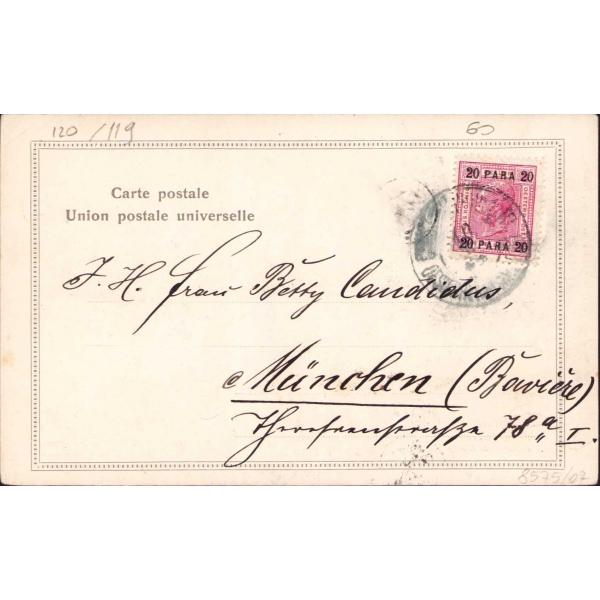 120 / 119
60
20 PARA 20
20 PARA 20
Carte postale
Union postale universelle
J. H. Frau Betty Candidus,
München (Bavière)
Theresenstraße 78 a I.
8575/02